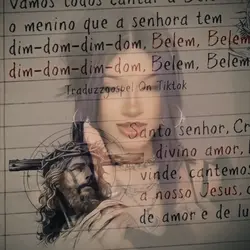 Vamos todos cantar a Belé
o menino que a senhora tem
dim-dom-dim-dom, Belem, Belem
dim-dom-dim-dom, Belem, Belem
Traduzzgospel On Tiktok
Santo senhor, Cr
divino amor,
vinde, cantemos
a nosso Jesus.
de amor e de lu